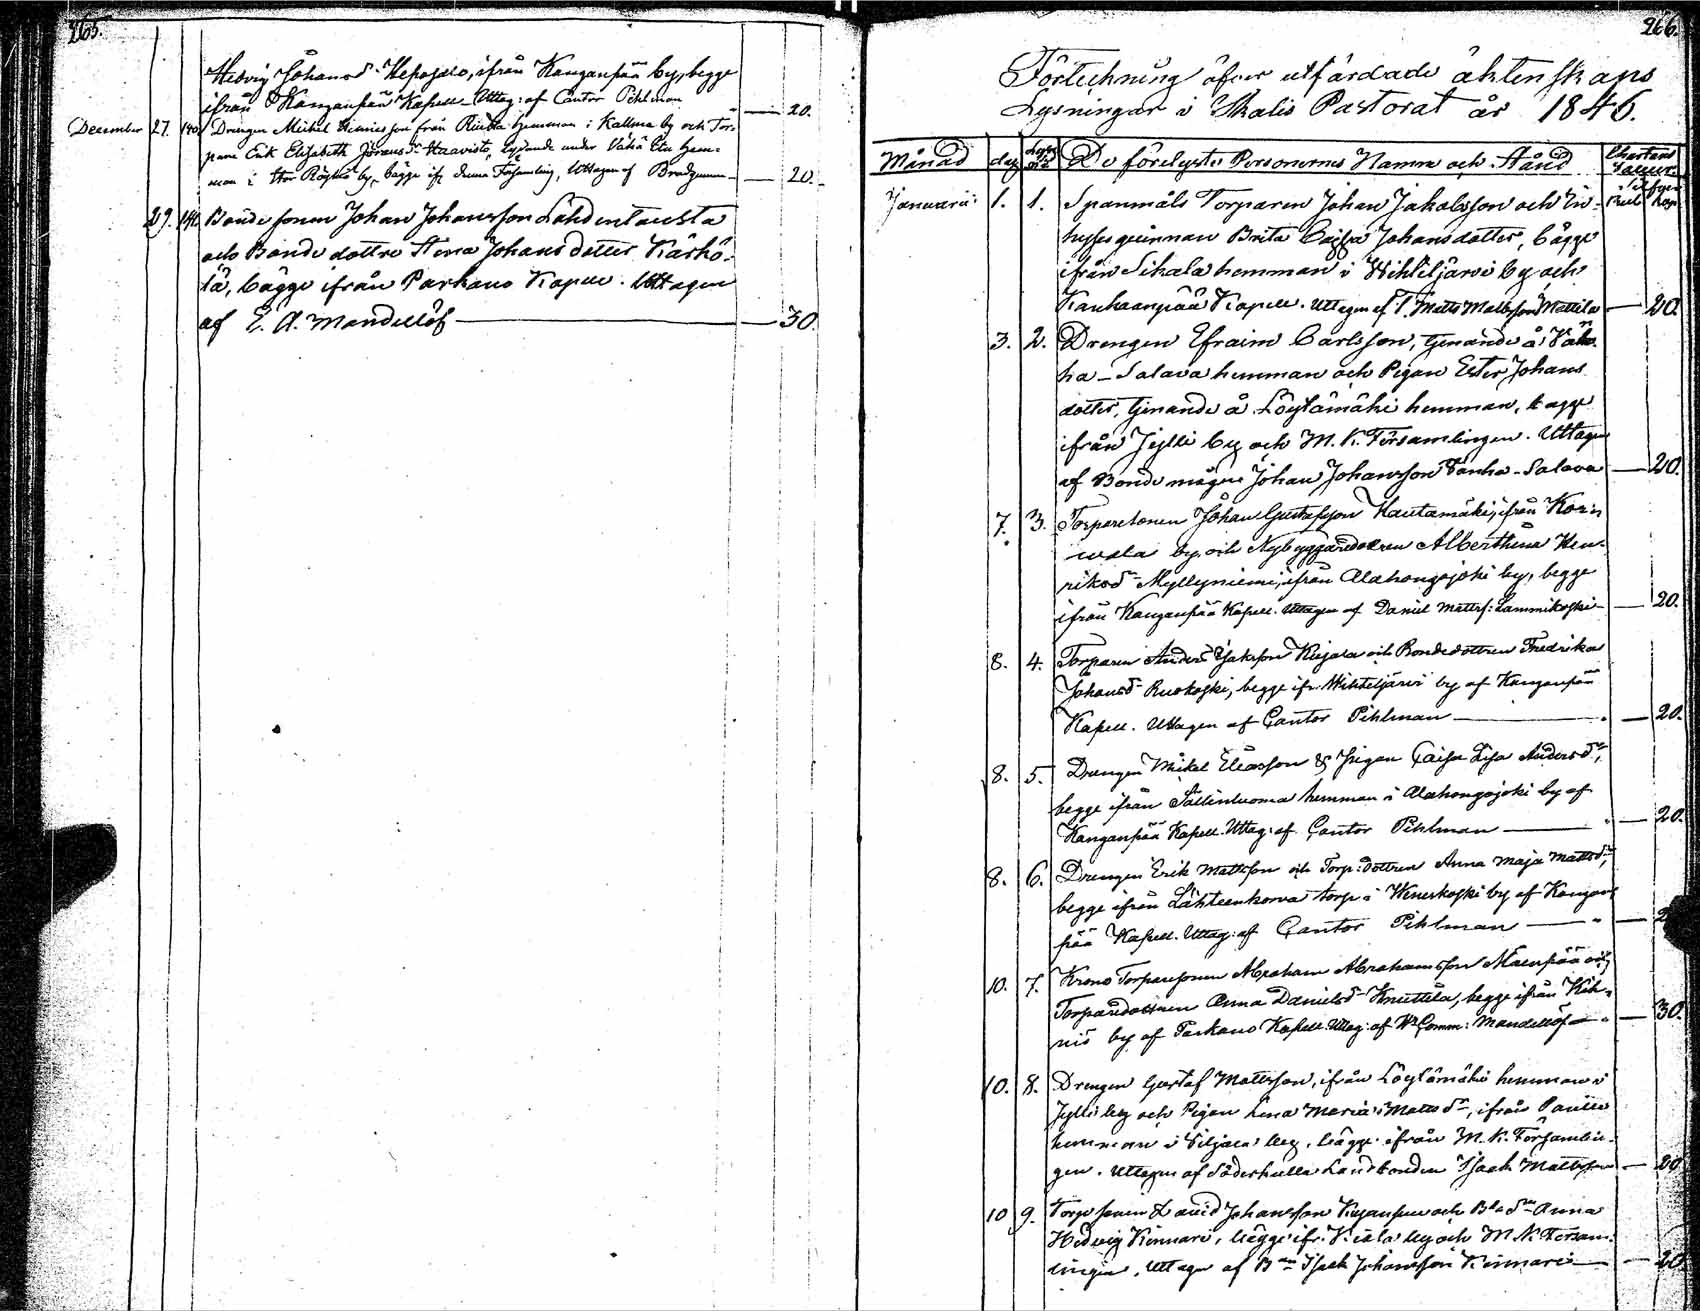 265.
Hedvig Johansd:r Heposalo, ifrån Kanganpää by, begge
ifrån Kanganpää Kapell. Uttag: af Cantor Pihlman 20.
December 27. 140. Drengen Michel from från hemman i Kallma by och Tor-
pare Enk Elisabeth Jöransd:r Haavisto, lydande under Vähä Etu hem-
man i Stor Röyhiö by, bägge ifr. denna Församling, Uttagen af Brudgummen 20.
29. 141. Bonde sonen Johan Johansson Lahdentausta
och Bonde dottren Stina Johans dotter Kärhö-
lä, bägge ifrån Parkano Kapell. Uttagen
af E. A. Mandellöf 30.
266.
Förteckning öfver utfärdade äktenskaps
Lysningar i Ikalis Pastorat år 1846.
Månad dag De förelyste Personernes Namn och Stånd
Januarii 1. 1. Spanmåls Torparen Johan Jakobsson och In-
hysesqvinnan Brita Cajsa Johansdotter, bägge
ifrån Sikala hemman i Wihteljärvi by och
Kankaanpää Kapell. Uttagen af T. Matts Mattsson Mattila 20.
3. 2. Drengen Efraim Carlsson, tjenande å Van-
ha-Salava hemman och Pigan Ester Johans
dotter, tjenande å Löytämäki hemman, bägge
ifrån Jylli by och M. K. Församlingen. Uttagen
af Bonde mågen Johan Johansson Vanha-Salava 20.
7. 3. Torparesonen Johan Gustafsson Hautamäki, ifrån Kor-
wala by, och Nybyggaredottren Alberthina Hen-
riksd:r Myllyniemi, ifrån Alahongojoki by, begge
ifrån Kanganpää Kapell. Uttagen af Daniel Mattss: Lammikoski 20.
8. 4. Torparen Anders Isaksson Kujala och Bondedottren Fredrika
Johansd:r Ruokoski, begge ifr. Wihteljärvi by af Kanganpää
Kapell. Uttagen af Cantor Pihlman 20.
8. 5. Drengen Mikel Eliasson & Pigan Caisa Lisa Andersd:r,
begge ifrån Sällinluoma hemman i Alahongojoki by af
Kanganpää Kapell. Uttag: af Cantor Pihlman 20.
8. 6. Drengen Erik Mattsson och Torp: dottren Anna Maja Mattsd:r,
begge ifrån Lähteenkorva torp i Weneskoski by af Kangan-
pää Kapell. Uttag: af Cantor Pihlman 2
10. 7. Krono Torparesonen Abraham Abrahamsson Mäenpää och
Torparedottren Anna Danielsd:r Knuttila, begge ifrån Kih-
niö by af Parkano Kapell. Uttag: af V. Comm: Mandellöf 30.
10. 8. Drengen Gustaf Mattsson, ifrån Löytämäki hemman i
Jylli by och Pigan Lena Maria Mattsd:r, ifrån
hemman i Viljala by, bägge ifrån M. K. Församlin-
gen. Uttagen af Söderhulla Landbonden Isaak Mattsson 20
10 9. Torp sonen David Johansson Kujanpää och B:de d:r Anna
Hedvig Kinnari, bägge ifr. Kiala by och M. K. Försam-
lingen. Uttagen af B:n Isak Johansson Kinnari 20